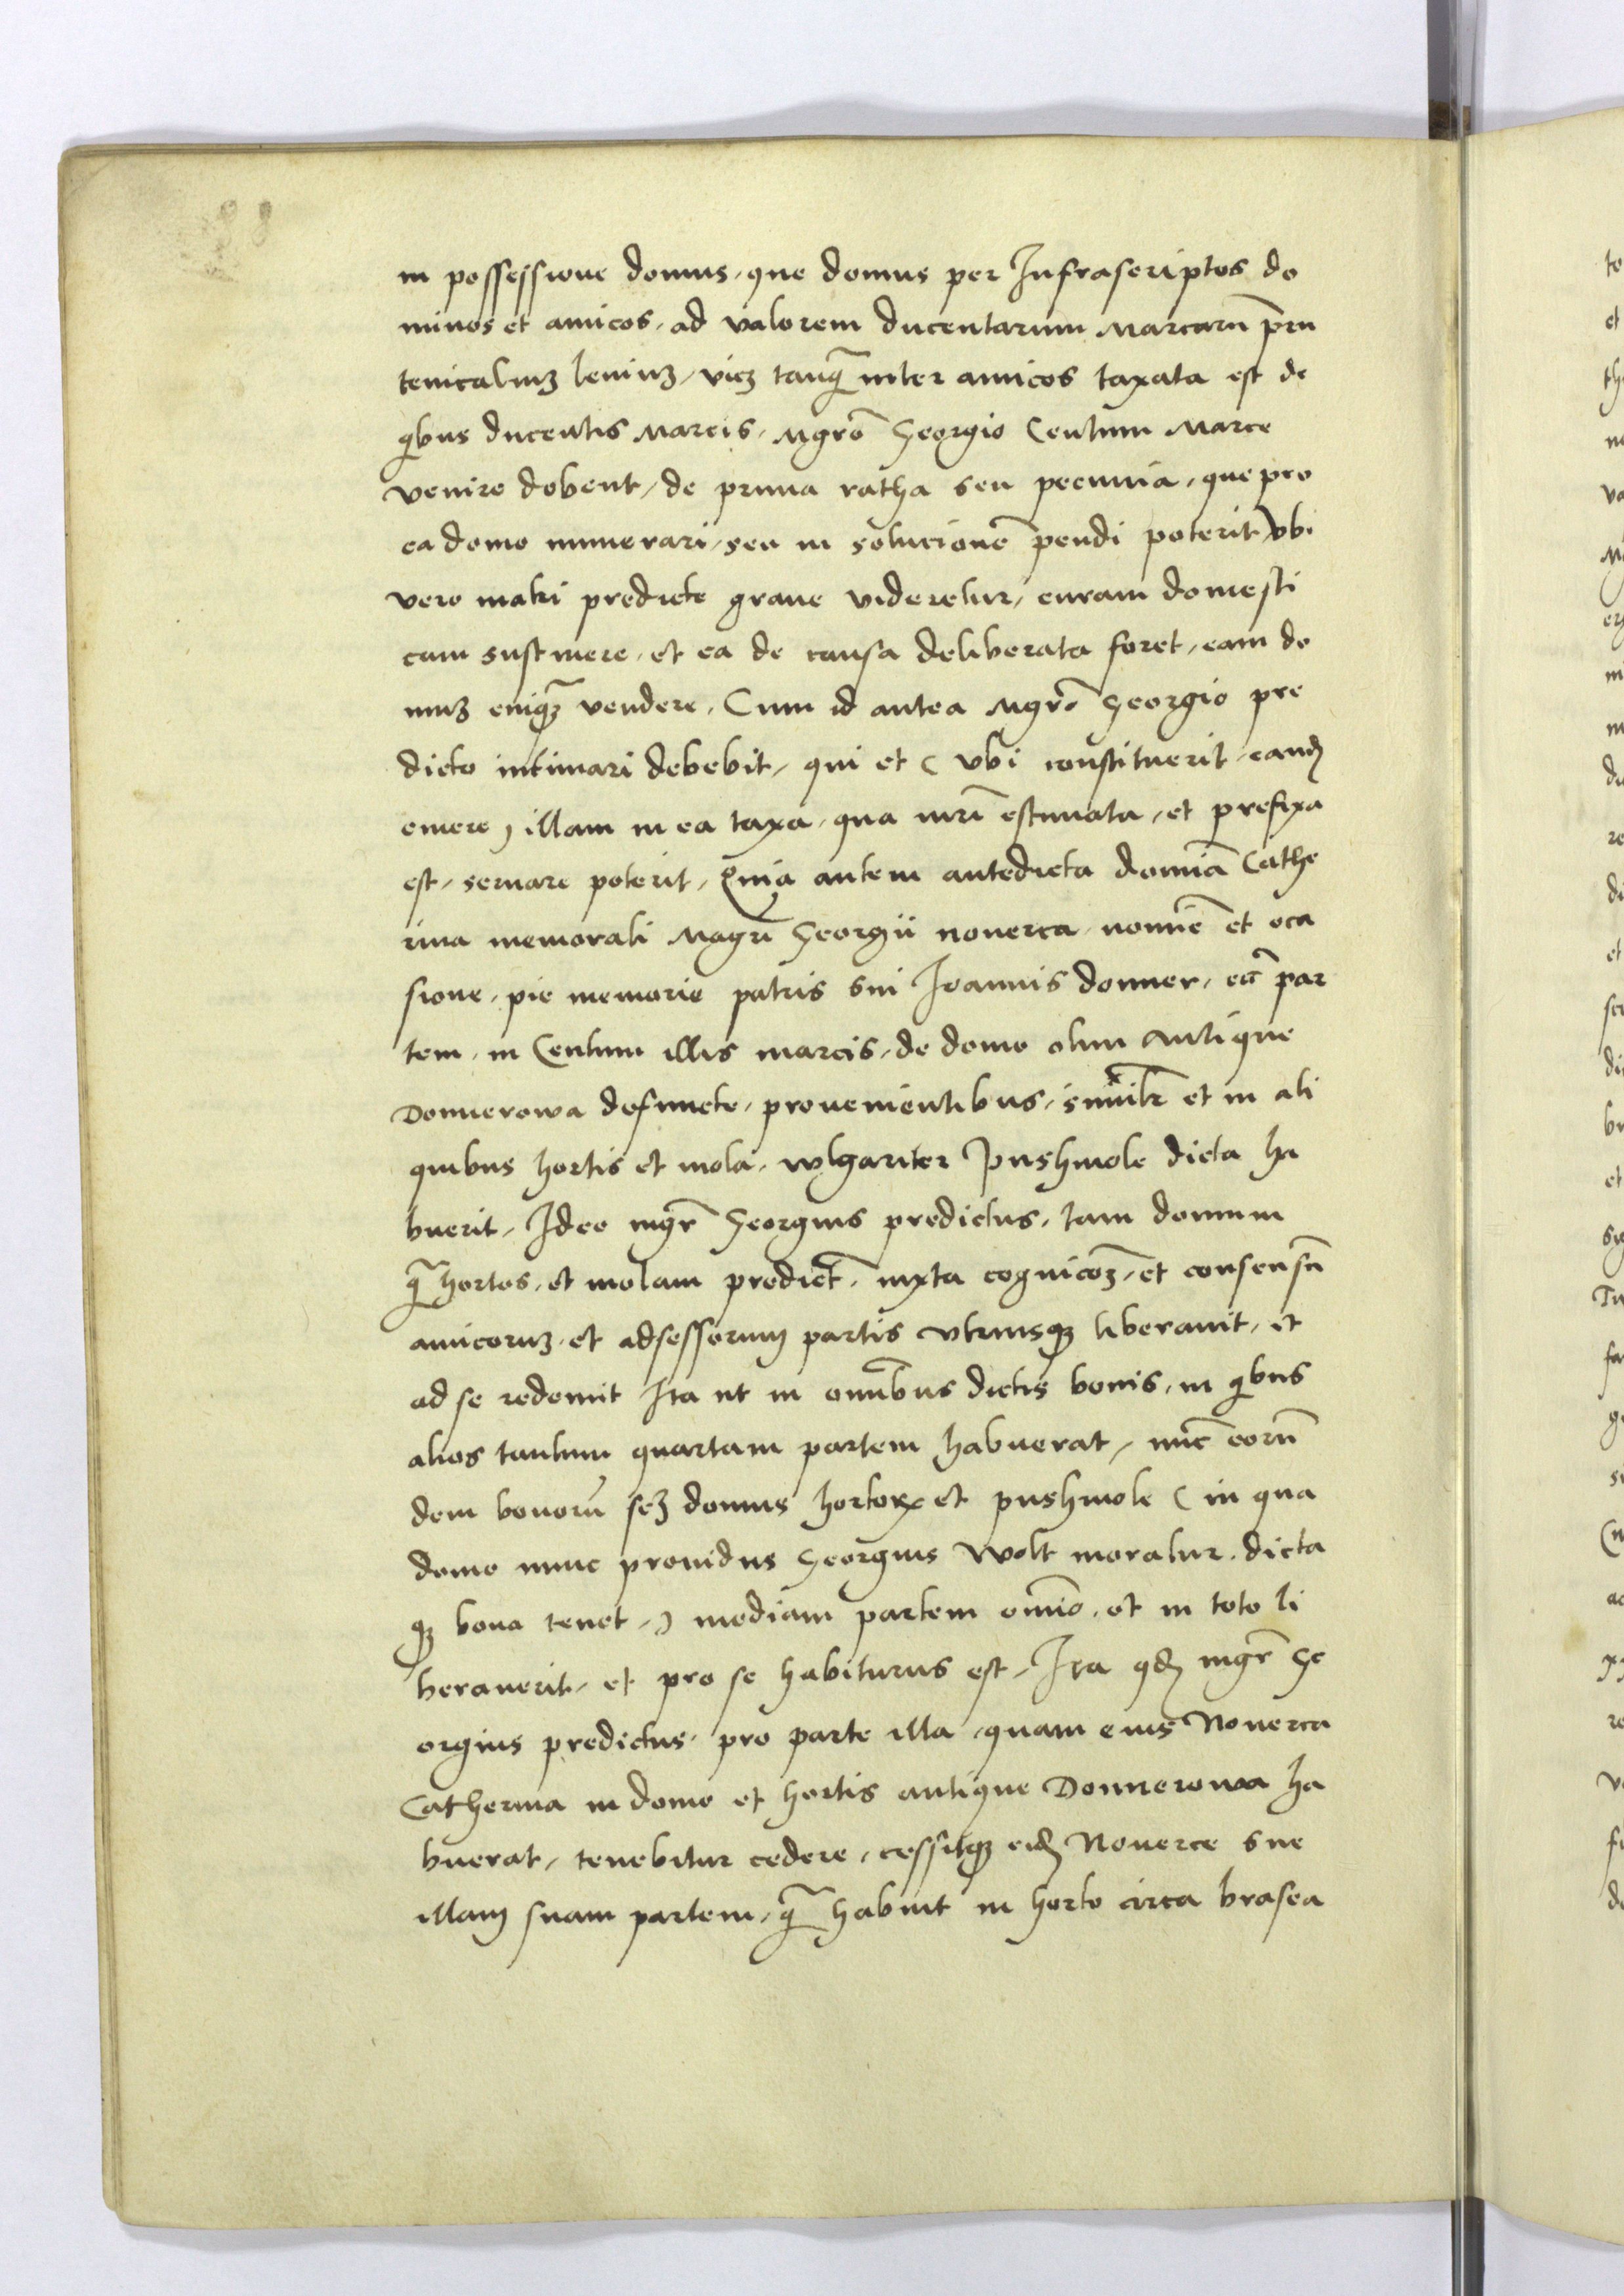 88
in possessione domus, que domus per Infrascriptos do
minos et amicos, ad valorem ducentarum Marcarū pru
tenicaliuʒ leviuʒ, vicʒ tanq̄ inter amicos taxata est de
qibus ducentis Marcis, Mgrō Georgio Centum Marce
venire debent, de prima ratha seu pecunia, que pro
ea domo numerari, seu in solucionē pendi poterit) vbi
vero matri predicte graue videretur, curam domesti
cam sustinere, et ea de causa deliberata foret, eam do
muʒ cuiqʒ vendere, Cum id antea Mgrō Georgio pre
dicto intimari debebit, qui et ( vbi constituerit, eand
emere ) illam in ea taxa, qua nūc estimata, et prefixa
est, seruare poterit, Quia autem antedicta domīa Cathe
rina memorati Magrī Georgii nouerca, nomīe et oca
sione, pie memorie patris sui Ioannis donner, eā par
tem, in Centum illis marcis, de domo olim Antique
Donnerowa defuncte, prouenientibus, similr̄ et in ali
quibus hortis et mola, wlgariter Pushmole dicta ha
buerit, Ideo mgr̄ Georgius predictus, tam domum
q̄ hortos, et molam predict̄, iuxta cognicōʒ, et consensū
amicoruʒ, et adsessorum partis vtriusqʒ liberauit, et
ad se redemit Ita ut in omībus dictis bonis, in qibus
alios tantum quartam partem habuerat, nūc eorū
dem bonorū scʒ domus hortoꝝ et pushmole ( in qua
domo nunc prouidus Georgius Wolt moratur, dicta
qʒ bona tenet, ) mediam partem omīo, et in toto li
berauerit, et pro se habiturus est, Ita qd mgr̄ Ge
orgius predictus, pro parte illa, quam eius Nouerca
Catherina in domo et hortis antique Donnerowa ha
buerat, tenebitur cedere, cessitqʒ eid Nouerce sue
illam suam partem, q̄ habuit in horto circa brasea